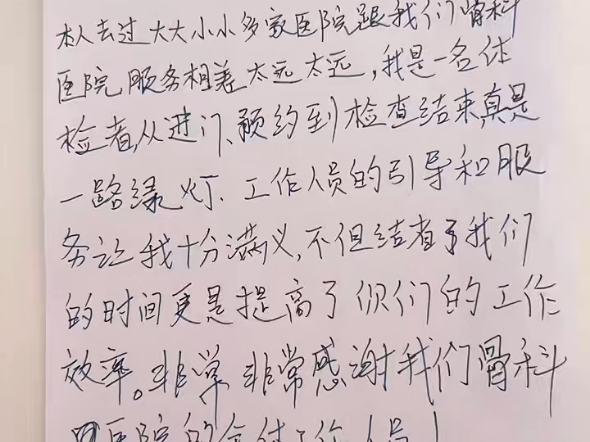 本人去过大大小小多家医院跟我们骨科
医院服务相差太远太远,我是一名体
检者,从进门、预约到检查结束,真是
一路绿灯、工作人员的引导和服
务让我十分满义,不但结省了我们
的时间更是提高了你们的工作
效率。非常非常感谢我们骨科
医院的全体工作人员!